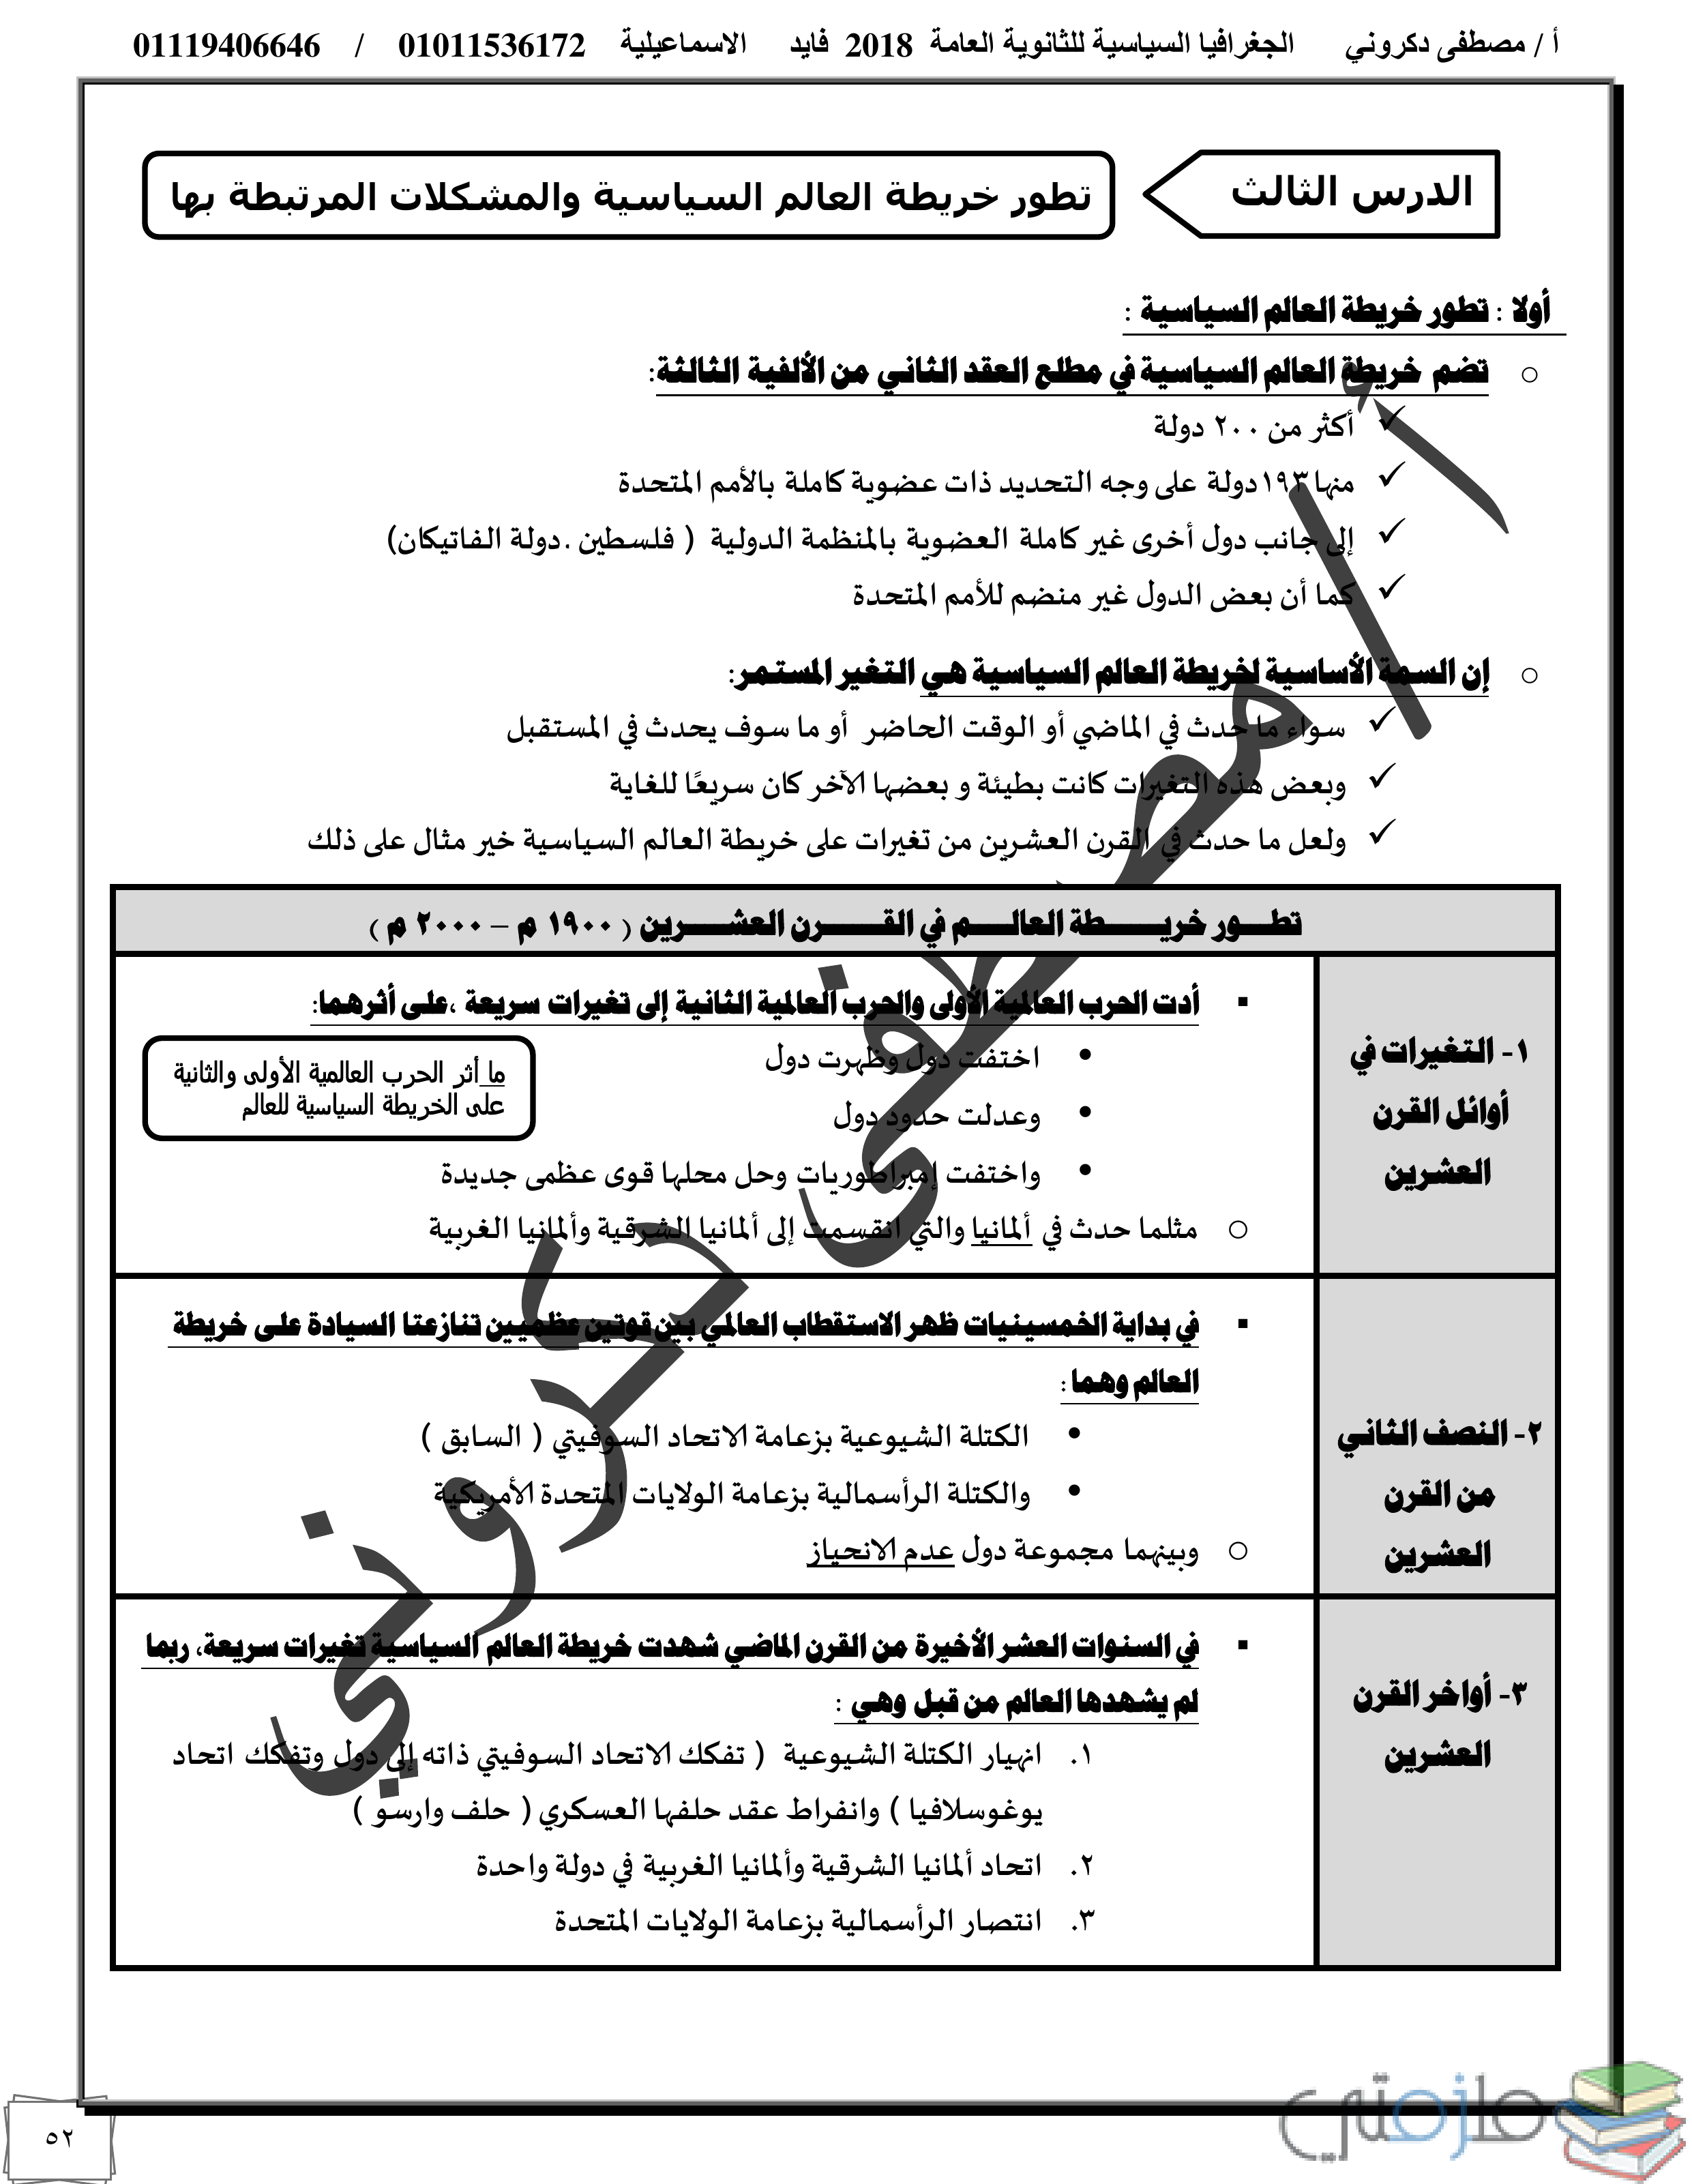 أ / مصطفى دكروني الجغرافيا السياسية للثانوية العامة 2018 فايد الاسماعيلية 01011536172 / 01119406646
الدرس الثالث
تطور خريطة العالم السياسية والمشكلات المرتبطة بها
أولا : تطور خريطة العالم السياسية :
○ تضم خريطة العالم السياسية في مطلع العقد الثاني من الألفية الثالثة:
✓ أكثر من ٢٠٠ دولة
✓ منها ١٩٣دولة على وجه التحديد ذات عضوية كاملة بالأمم المتحدة
✓ إلى جانب دول أخرى غير كاملة العضوية بالمنظمة الدولية ( فلسطين .دولة الفاتيكان)
✓ كما أن بعض الدول غير منضم للأمم المتحدة
○ إن السمة الأساسية لخريطة العالم السياسية هي التغير المستمر:
✓ سواء ما حدث في الماضي أو الوقت الحاضر أو ما سوف يحدث في المستقبل
✓ وبعض هذه التغيرات كانت بطيئة و بعضها الآخر كان سريعًا للغاية
✓ ولعل ما حدث في القرن العشرين من تغيرات على خريطة العالم السياسية خير مثال على ذلك
تطـــور خريـــــطة العالـــــم في القـــــــرن العشـــــــرين ( ١٩٠٠ م – ٢٠٠٠ م )
١- التغيرات في
أوائل القرن
العشرين
▪ أدت الحرب العالمية الأولى والحرب العالمية الثانية إلى تغيرات سريعة ،على أثرهما:
• اختفت دول وظهرت دول
• وعدلت حدود دول
• واختفت إمبراطوريات وحل محلها قوى عظمى جديدة
○ مثلما حدث في ألمانيا والتي انقسمت إلى ألمانيا الشرقية وألمانيا الغربية
ما أثر الحرب العالمية الأولى والثانية
على الخريطة السياسية للعالم
٢- النصف الثاني
من القرن
العشرين
▪ في بداية الخمسينيات ظهر الاستقطاب العالمي بين قوتين عظميين تنازعتا السيادة على خريطة
العالم وهما :
• الكتلة الشيوعية بزعامة الاتحاد السوفيتي ( السابق )
• والكتلة الرأسمالية بزعامة الولايات المتحدة الأمريكية
○ وبينهما مجموعة دول عدم الانحياز
٣- أواخر القرن
العشرين
▪ في السنوات العشر الأخيرة من القرن الماضي شهدت خريطة العالم السياسية تغيرات سريعة، ربما
لم يشهدها العالم من قبل وهي :
١. انهيار الكتلة الشيوعية ( تفكك الاتحاد السوفيتي ذاته إلى دول وتفكك اتحاد
يوغوسلافيا ) وانفراط عقد حلفها العسكري ( حلف وارسو )
٢. اتحاد ألمانيا الشرقية وألمانيا الغربية في دولة واحدة
٣. انتصار الرأسمالية بزعامة الولايات المتحدة
أ / مصطفى دكروني
ملزمتي
٥٢